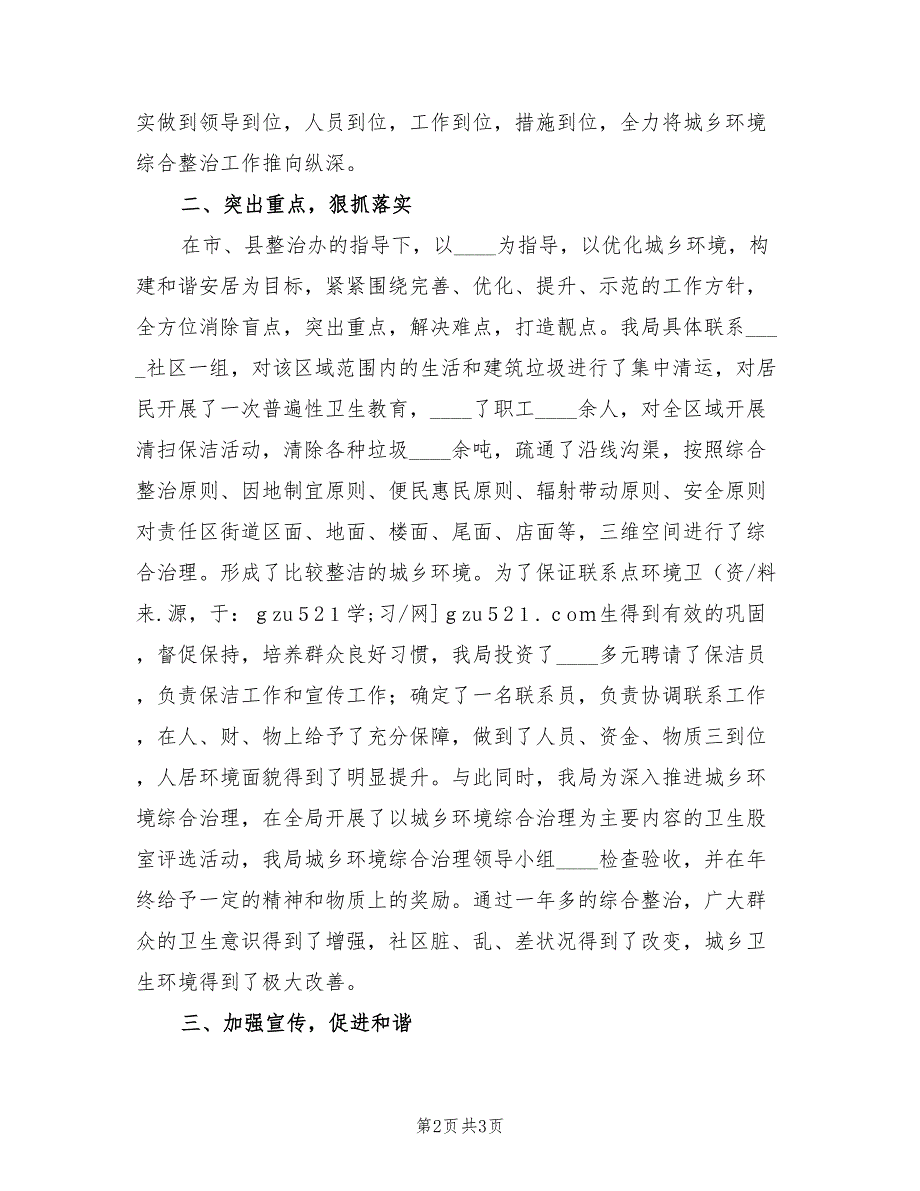 实做到领导到位，人员到位，工作到位，措施到位，全力将城乡环境
综合整治工作推向纵深。
二、突出重点，狠抓落实
在市、县整治办的指导下，以____为指导，以优化城乡环境，构
建和谐安居为目标，紧紧围绕完善、优化、提升、示范的工作方针，
全方位消除盲点，突出重点，解决难点，打造靓点。我局具体联系___
_社区一组，对该区域范围内的生活和建筑垃圾进行了集中清运，对居
民开展了一次普遍性卫生教育，____了职工____余人，对全区域开展
清扫保洁活动，清除各种垃圾____余吨，疏通了沿线沟渠，按照综合
整治原则、因地制宜原则、便民惠民原则、辐射带动原则、安全原则
对责任区街道区面、地面、楼面、尾面、店面等，三维空间进行了综
合治理。形成了比较整洁的城乡环境。为了保证联系点环境卫（资/料
来.源，于：gzu521学;习/网]gzu521.com生得到有效的巩固
，督促保持，培养群众良好习惯，我局投资了____多元聘请了保洁员
，负责保洁工作和宣传工作；确定了一名联系员，负责协调联系工作
，在人、财、物上给予了充分保障，做到了人员、资金、物质三到位
，人居环境面貌得到了明显提升。与此同时，我局为深入推进城乡环
境综合治理，在全局开展了以城乡环境综合治理为主要内容的卫生股
室评选活动，我局城乡环境综合治理领导小组____检查验收，并在年
终给予一定的精神和物质上的奖励。通过一年多的综合整治，广大群
众的卫生意识得到了增强，社区脏、乱、差状况得到了改变，城乡卫
生环境得到了极大改善。
三、加强宣传，促进和谐
第2页 共3页